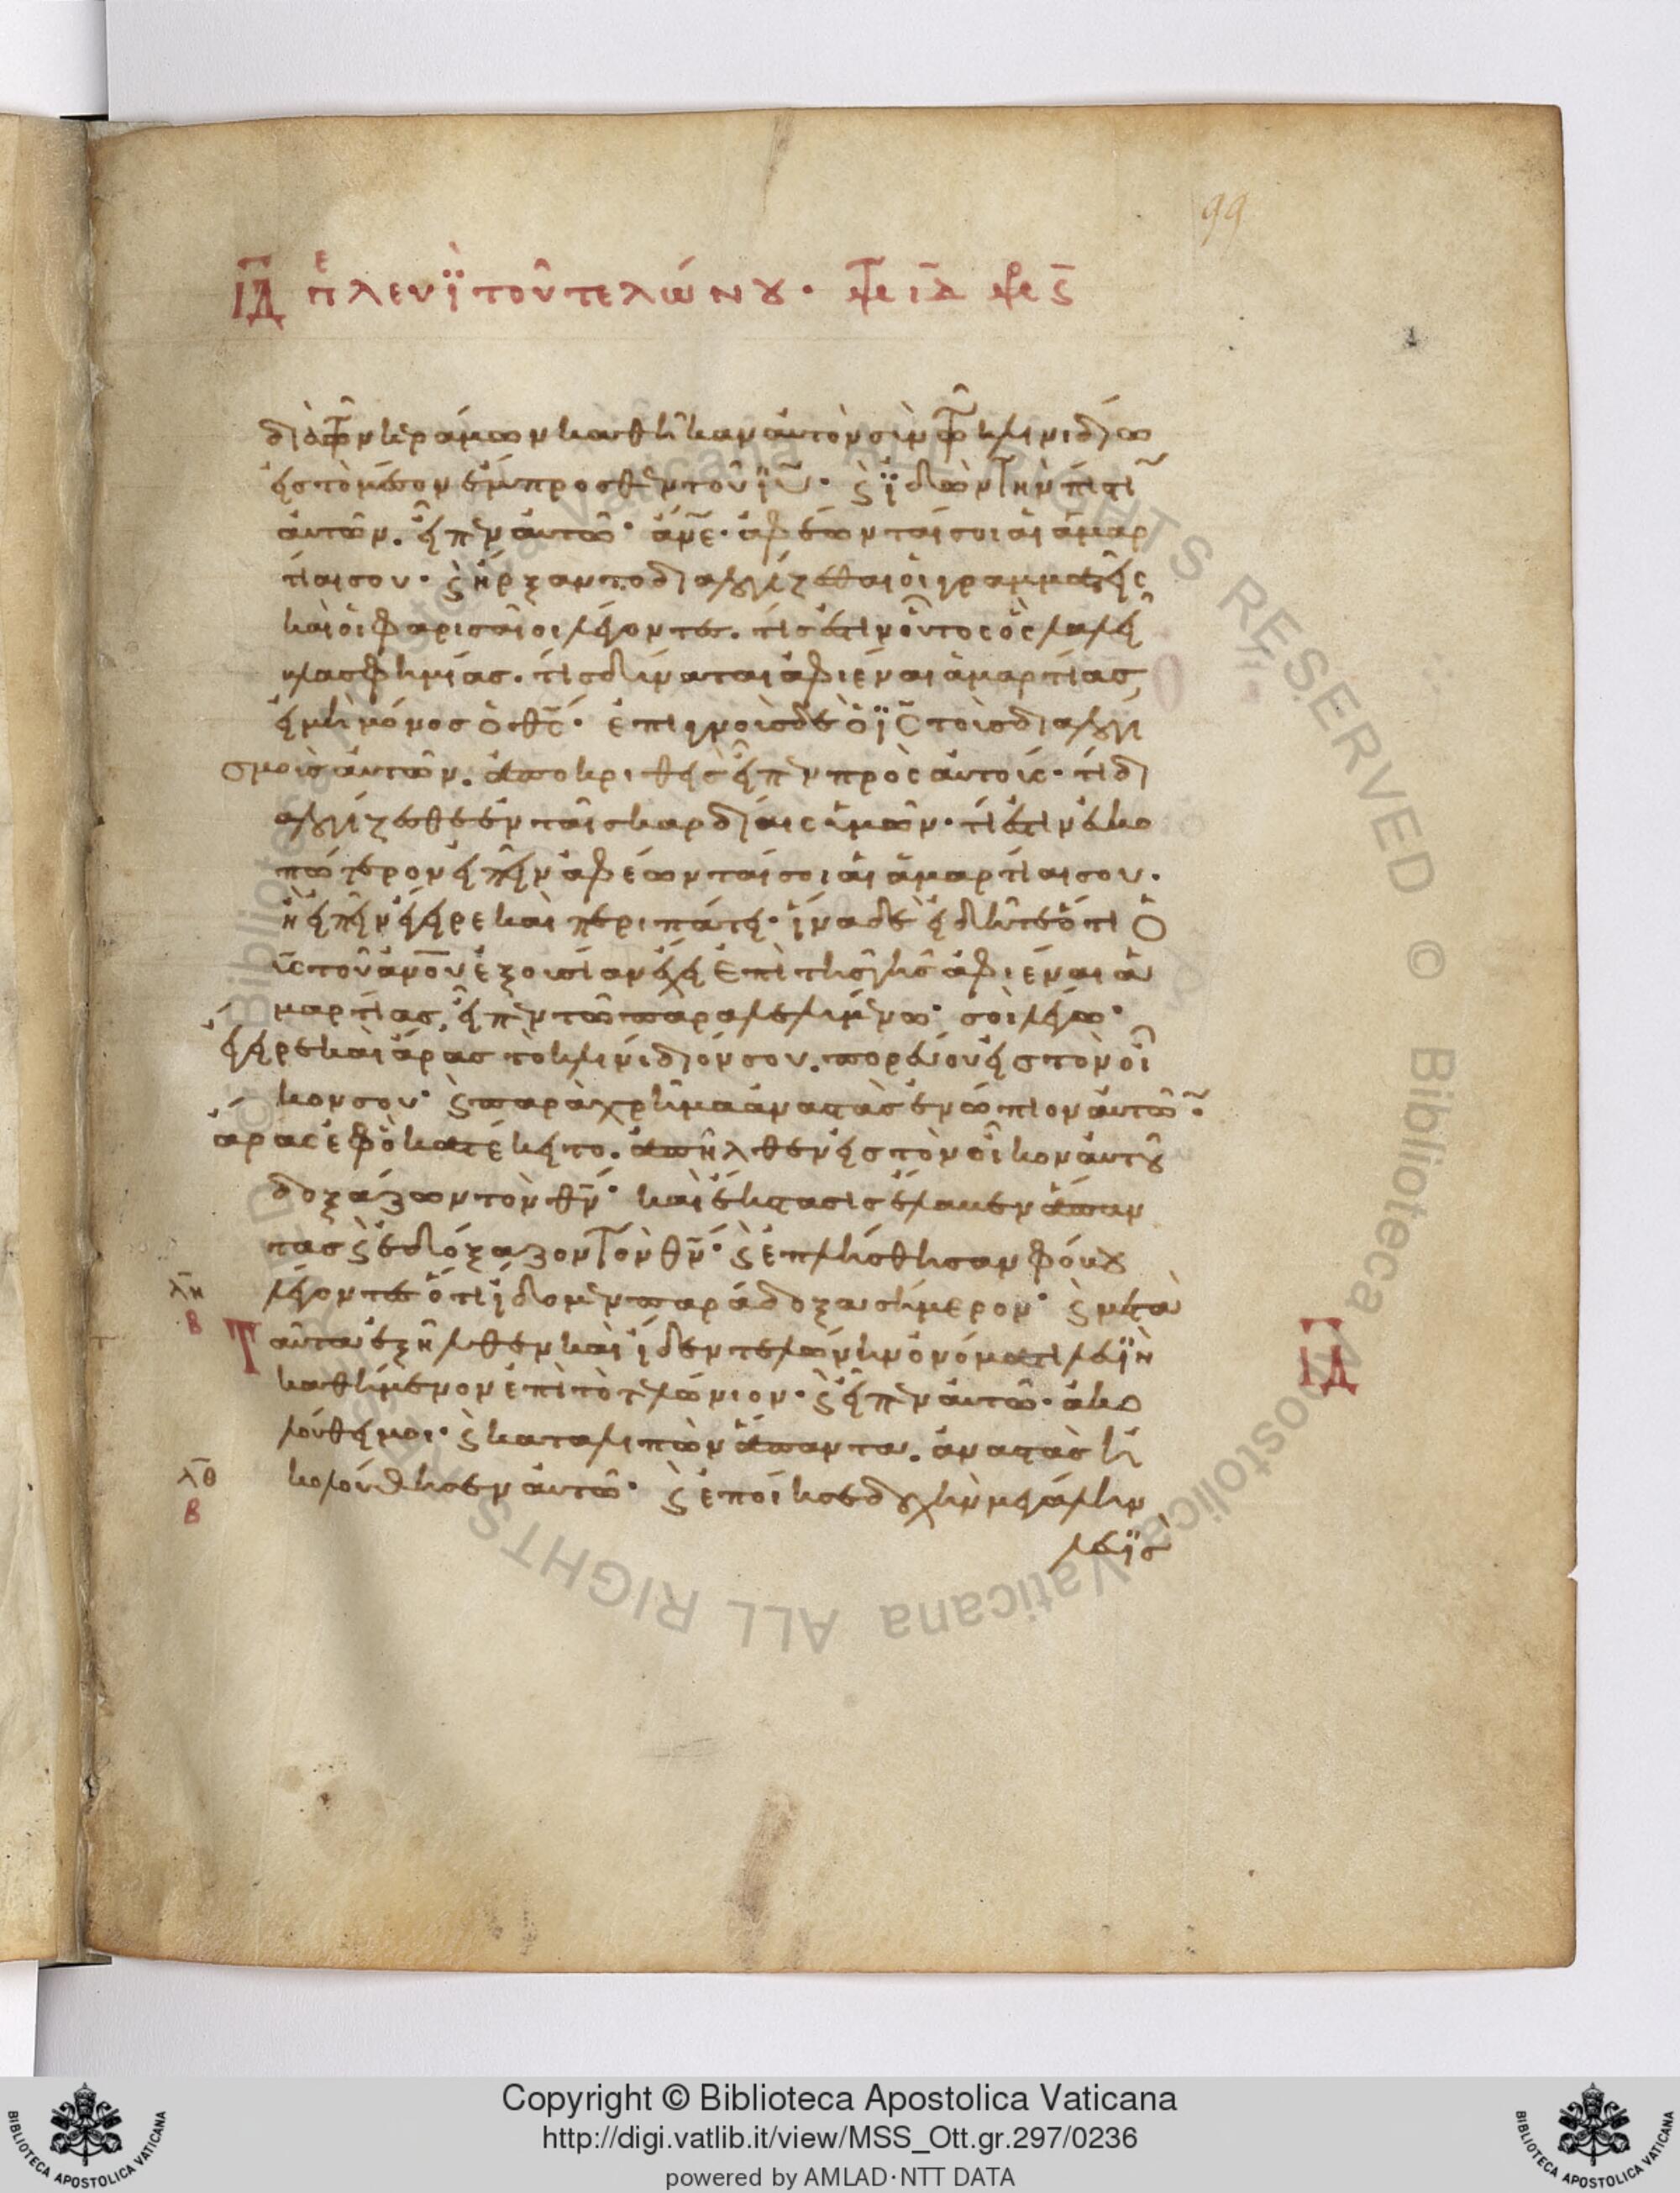 99
ΙΔ πε λευὶ τοῦ τελώνου · Μτ ιδ Μρ ς
διὰ τῶν κεράμων καθῆκαν αὐτὸν σὺν τῶ κλινιδίω
εἰς τὸ μέσον ἔμπροσθεν τοῦ ιυ · ϗ ἰδὼν τὴν πίστιν
αὐτῶν. εἶπεν αὐτῶ · ἄνε · ἀφέωνταί σοι αἱ ἁμαρ
τίαι σου · ϗ ἤρξαντο διαλογίζεσθαι οἱ γραμματεῖς
καὶ οἱ φαρισαῖοι λέγοντες. τίς ἐστιν οὗτος ὃς λαλεῖ
βλασφημίας. τίς δύναται ἀφιέναι ἁμαρτίας,
εἰ μὴ μόνος ὁ θς · ἐπιγνοὺς δὲ ὁ ις τοὺς διαλογι
σμοὺς αὐτῶν. ἀποκριθεὶς εἶπεν πρὸς αὐτούς · τί δι
αλογίζεσθε ἐν ταῖς καρδίαις ὑμῶν · τί ἐστιν εὐκο
πώτερον εἰπεῖν ἀφέωνταί σοι αἱ ἁμαρτίαι σου ·
ἢ εἰπεῖν ἔγειρε καὶ περιπάτει · ἵνα δὲ εἰδῆτε ὅτι ὁ
υς τοῦ ανου ἐξουσίαν ἔχει ἐπὶ τῆς γῆς ἀφιέναι ἁ
μαρτίας, εἶπεν τῶ παραλελυμένω · σοὶ λέγω ·
ἔγειρε καὶ ἄρας τὸ κλινίδιόν σου. πορεύου εἰς τὸν οἶ
κον σου · ϗ παραχρῆμα ἀναστὰς ἐνώπιον αὐτῶν ·
ἄρας ἐφ ὃ κατέκειτο. ἀπῆλθεν εἰς τὸν οἶκον αὐτοῦ
δοξάζων τὸν θν · καὶ ἔκστασις ἔλαβεν ἅπαν
τας ϗ ἐδόξαζον τὸν θν · ϗ ἐπλήσθησαν φόβου
λη λέγοντες ὅτι εἴδομεν παράδοξα σήμερον · ϗ μετὰ
β Ταῦτα ἐξῆλθεν καὶ ἴδεν τελώνην ὀνόματι λευῒν ΙΔ
καθήμενον ἐπὶ τὸ τελώνιον · ϗ εἶπεν αὐτῶ · ἀκο
λούθει μοι · ϗ καταλιπὼν ἅπαντα. ἀναστὰς ἠ
λθ κολούθησεν αὐτῶ · ϗ ἐποίησε δοχὴν μεγάλην
β
λευῒς
Copyright © Biblioteca Apostolica Vaticana
http://digi.vatlib.it/view/MSS_Ott.gr.297/0236
powered by AMLAD·NTT DATA